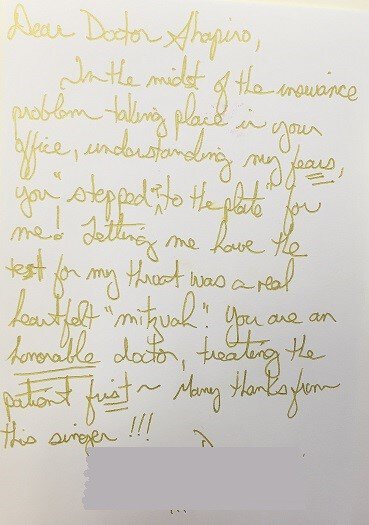 Dear Doctor Shapiro,
In the midst of the insurance
problem taking place in your
office, understanding my fears,
you "stepped ↑ to the plate" for
me! Letting me have the
test for my throat was a real
heartfelt "mitzvah". You are an
honorable doctor, treating the
patient first ~ Many thanks from
this singer !!!